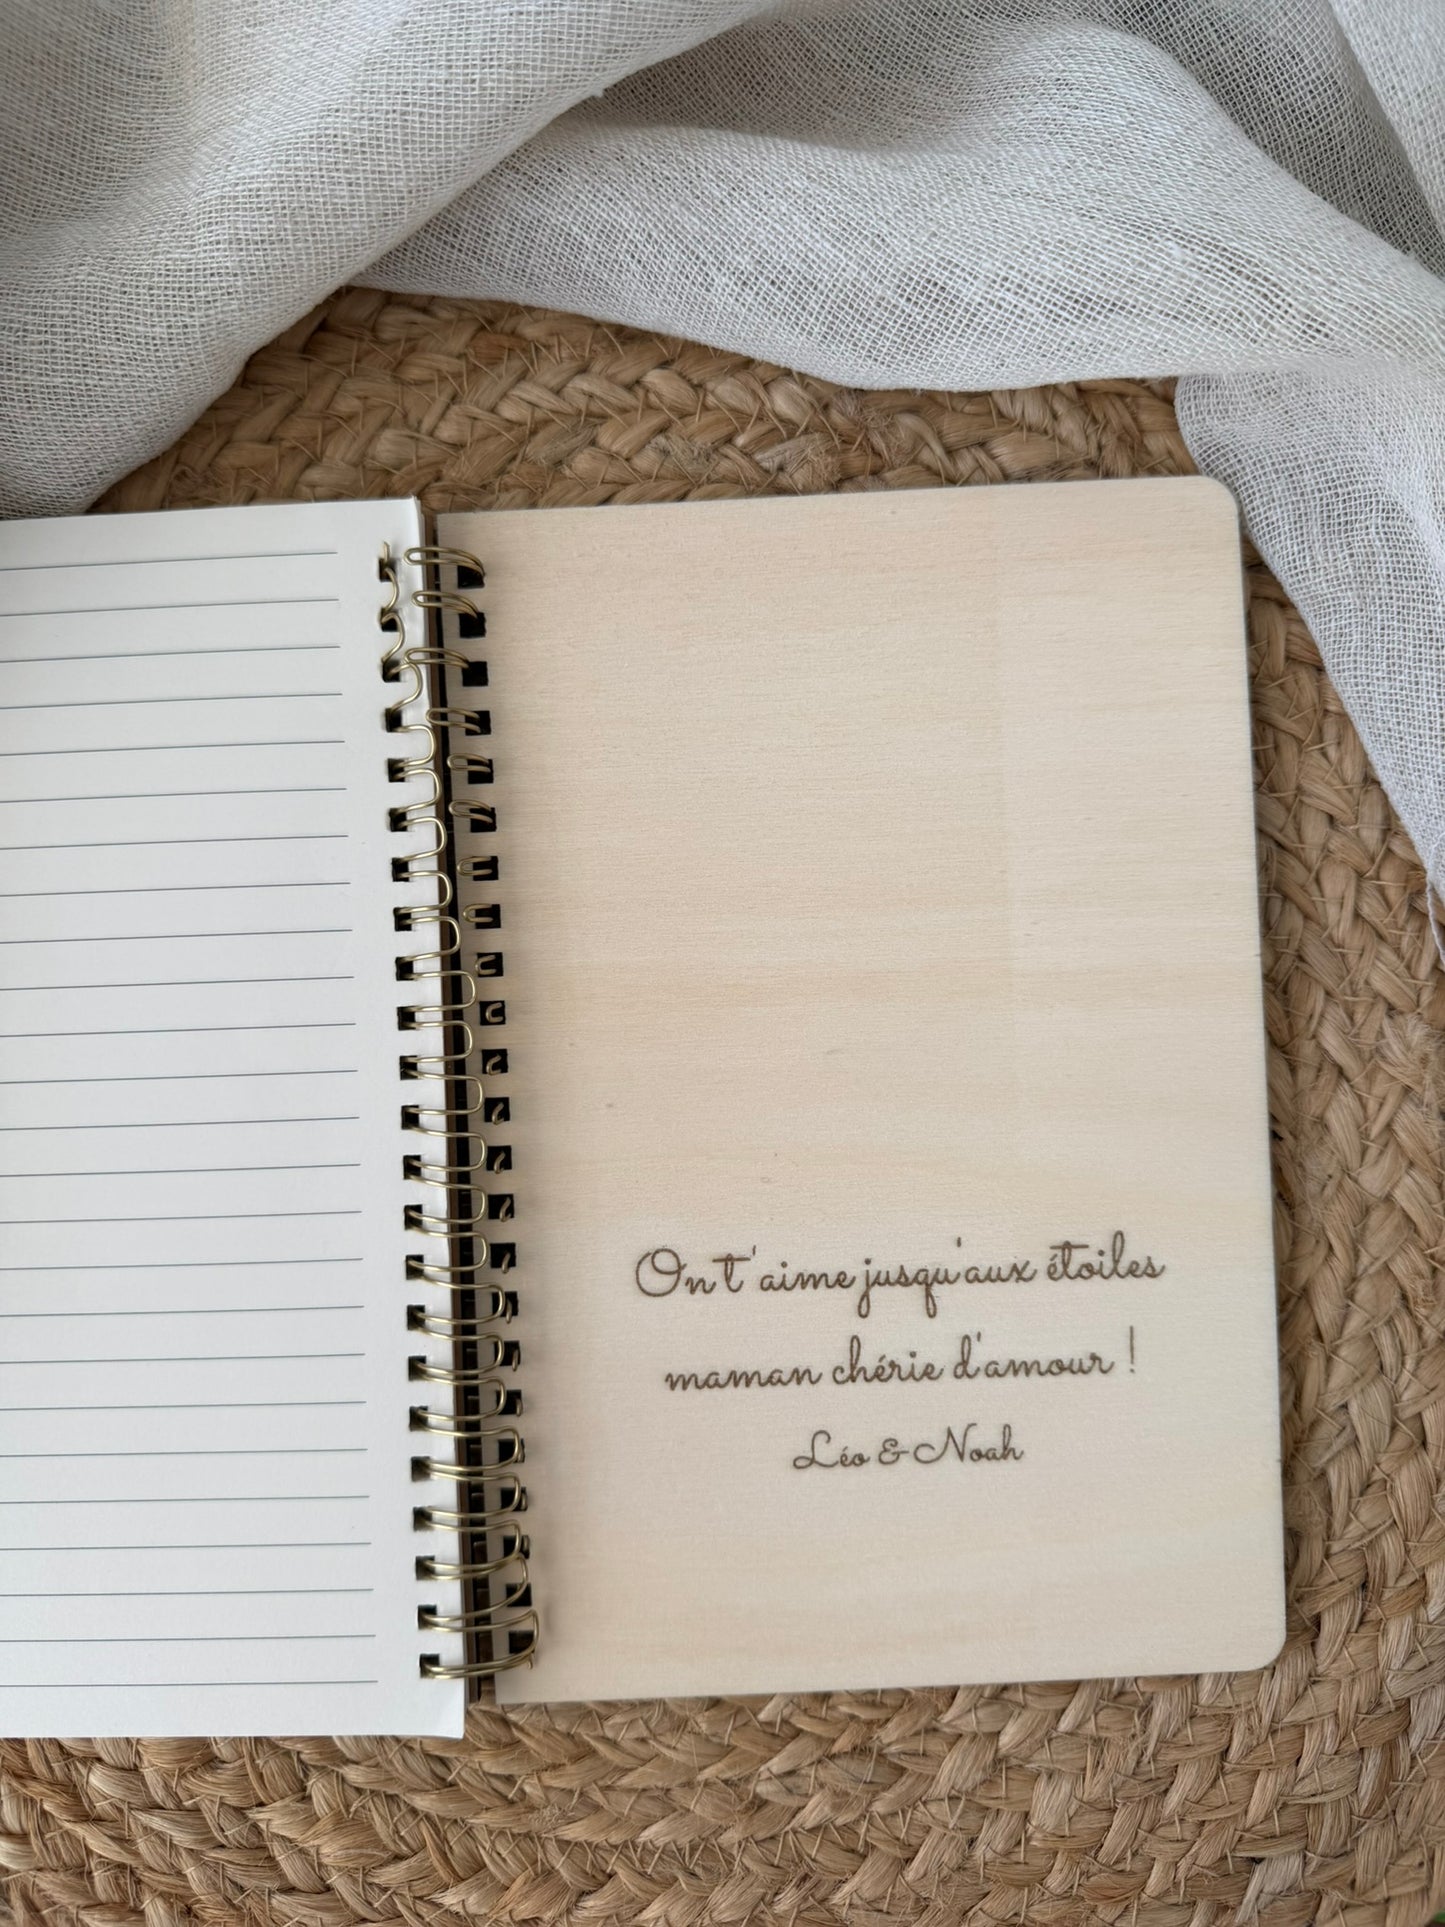 On t'aime jusqu'aux étoiles
maman chérie d'amour !
Léo & Noah